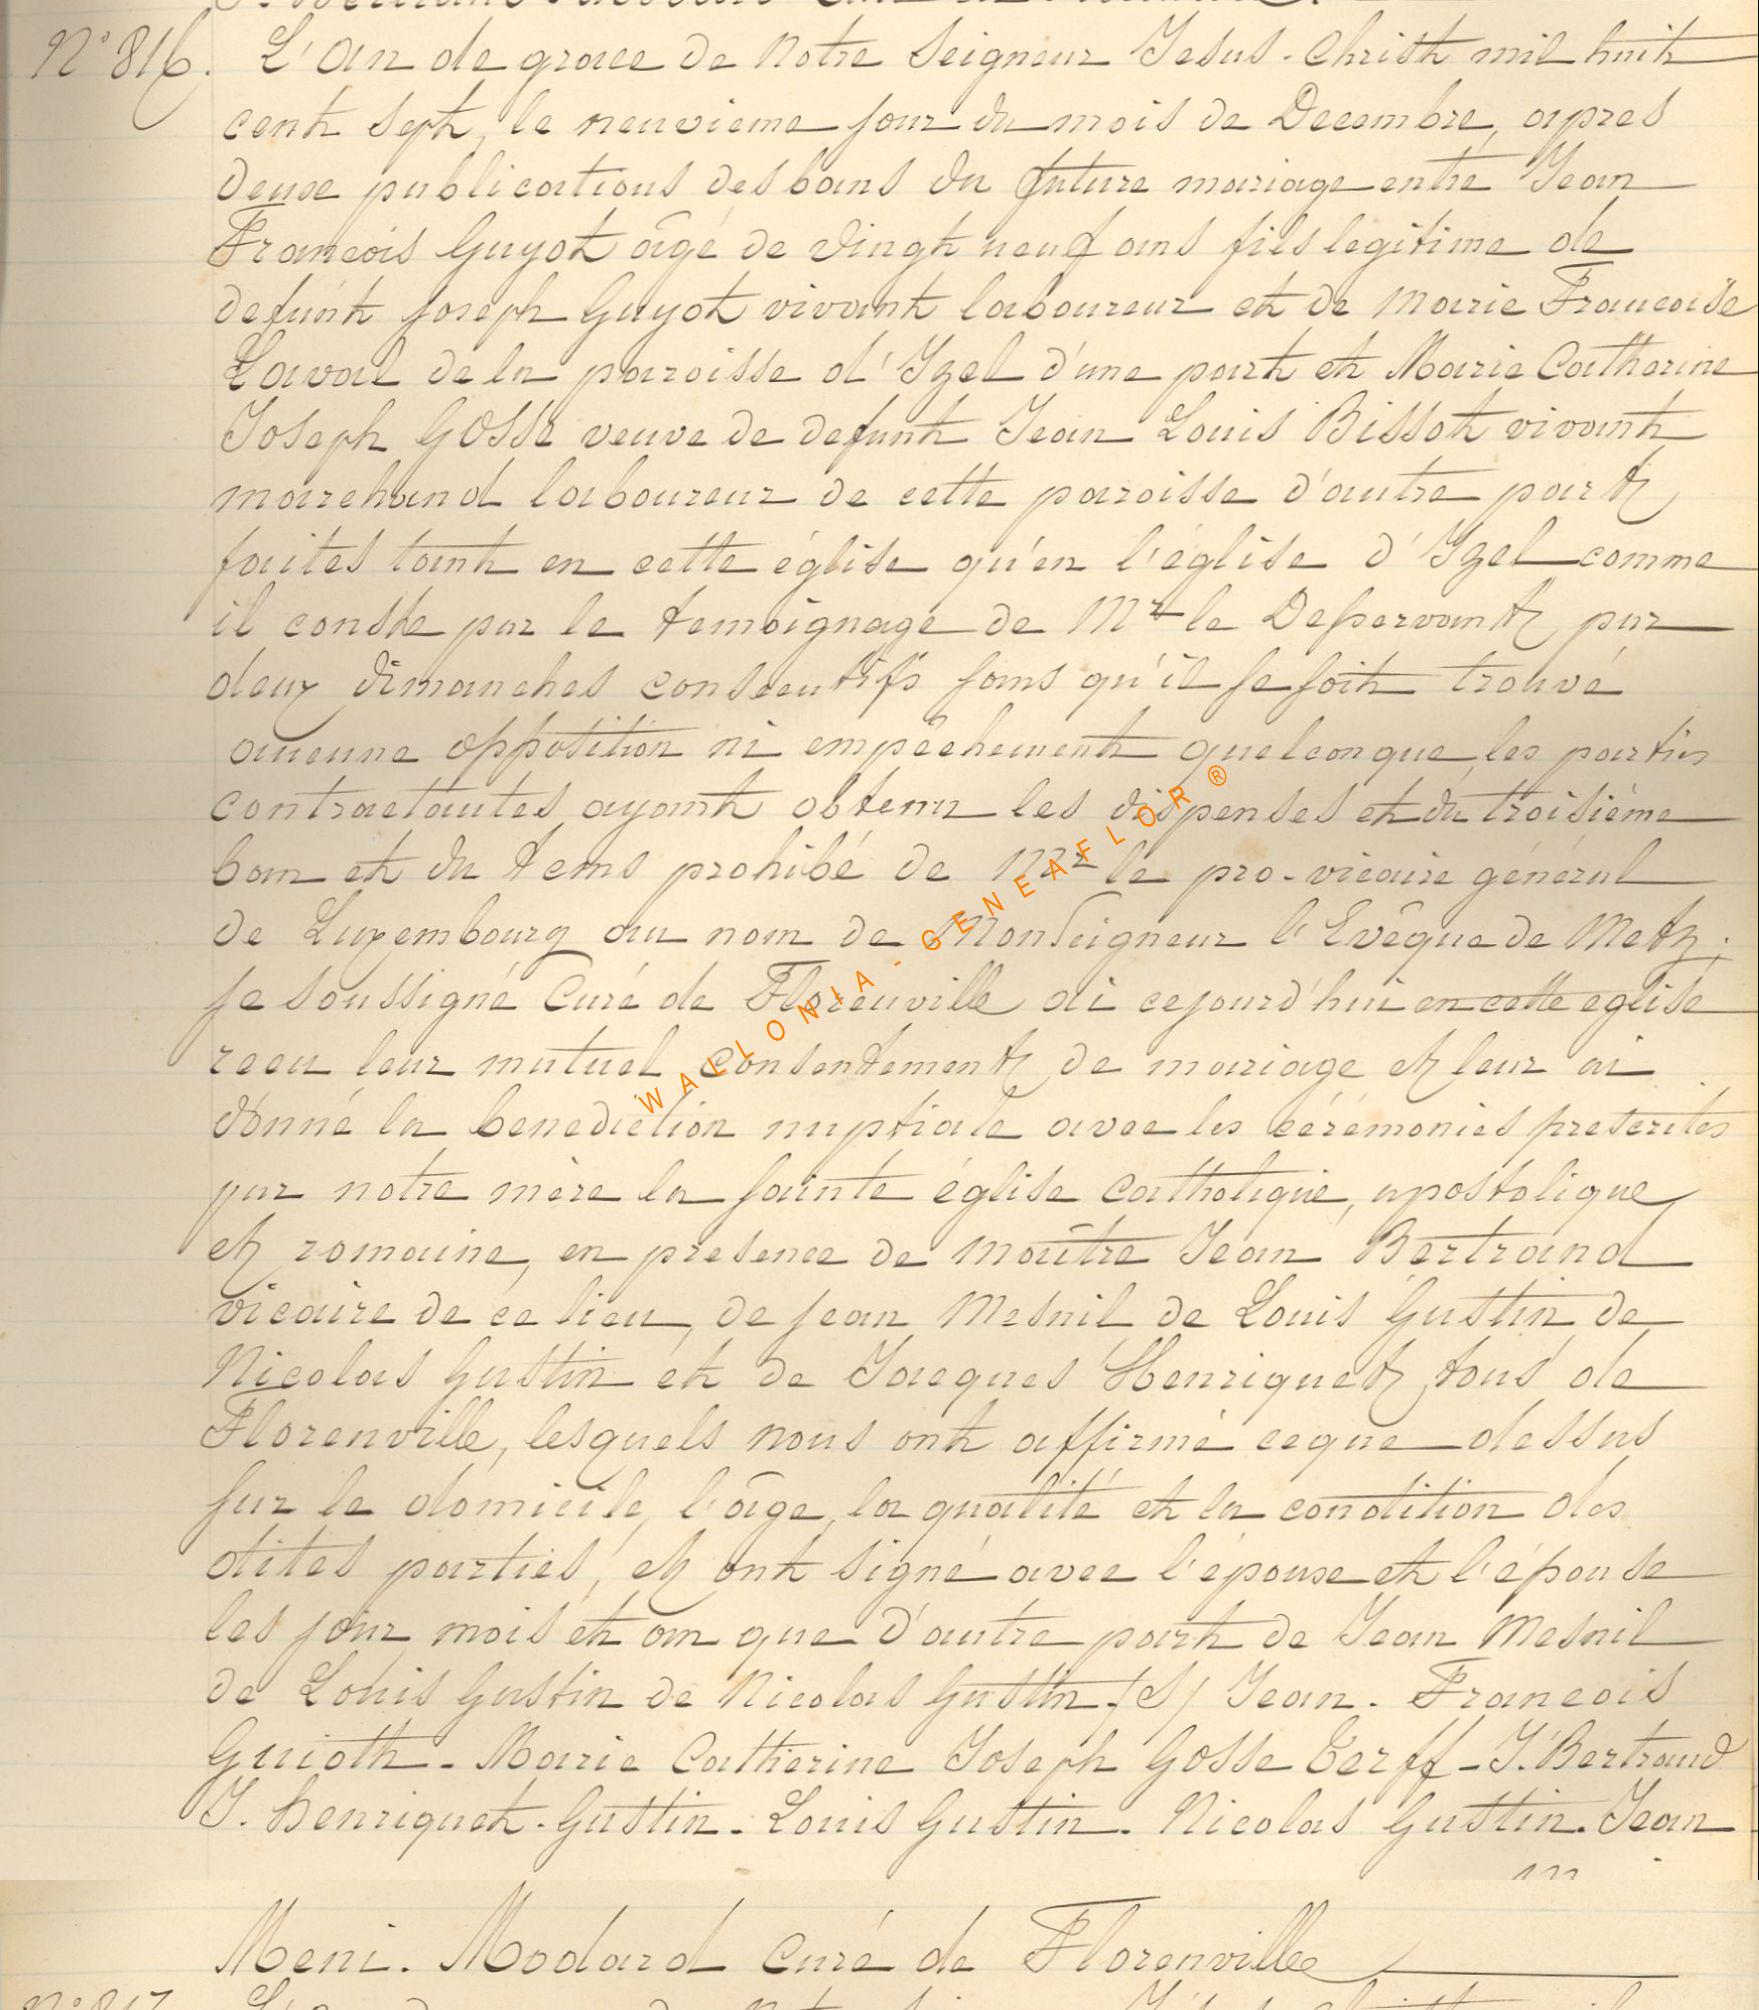 N° 816. L'an de grace de Notre Seigneur Jesus-Christ mil huit
cent sept, le neuvieme jour du mois de Decembre, apres
deux publications des bans du future mariage entre Jean
Francois Guyot âgé de vingt neuf ans fils legitime de
defunt joseph Guyot vivant laboureur et de Marie Francoise
Laval de la paroisse d'Izel d'une part et Marie Catherine
Joseph GOSSE veuve de defunt Jean Louis Bissot vivant
marchand laboureur de cette paroisse d'autre part
faites tant en cette église qu'en l'église d'Izel comme
il conste par le temoignage de Mr le Desservant par
deux dimanches consecutifs sans qu'il se soit trouvé
aucune opposition ni empêchement quelconque, les parties
contractantes ayant obtenu les dispenses et du troisième
ban et du tems prohibé de Mr le pro-vicaire général
de Luxembourg au nom de Monseigneur l'Evêque de Metz;
je soussigné Curé de Florenville ai cejourd'hui en cette eglise
recu leur mutuel consentement de mariage et leur ai
donné la benediction nuptiale avec les cérémonies prescrites
par notre mère la sainte église catholique, apostolique
et romaine, en presence de maître Jean Bertrand
vicaire de ce lieu, de jean Mesnil de Louis Gustin de
Nicolas Gustin et de Jacques Henriquet, tous de
Florenville, lesquels nous ont affirmé ceque dessus
sur le domicile, l'âge, la qualité et la condition des
dites parties, et ont signé avec l'époux et l'épouse
les jour, mois et an que d'autre part de Jean Mesnil
de Louis Gustin de Nicolas Gustin. (S) Jean-Francois
Guioth - Marie Catherine Joseph Gosse Cerff - J. Bertrand
J. henriquet - Gustin - Louis Gustin - Nicolas Gustin. Jean
Meni. Modard Curé de Florenville
WALLONIA - GENEAFLOR ®
N° 817